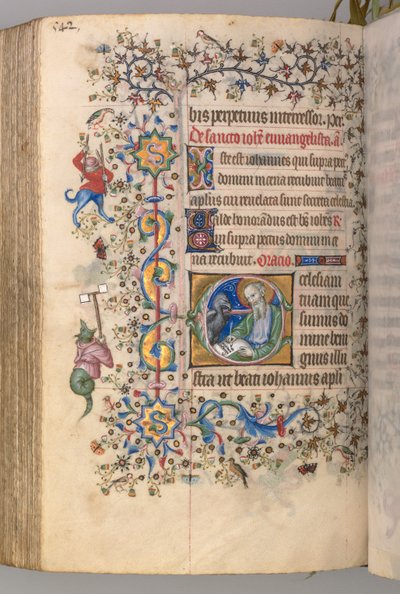 542
bis perpetuus intercessor. per
De sancto iohe euuangelista. a
Iste est iohannes qui supra pec
domini in cena recubuit beat
aplus cui reuelata sunt secreta celestia
Valde honorandus est bs iohes R
Qui supra pectus domini in ce
na recubuit. Oracio
Ecclesiam
tuam que
sumus do
mine beni
gnus illu
stra ut beati iohannis apli
S
S